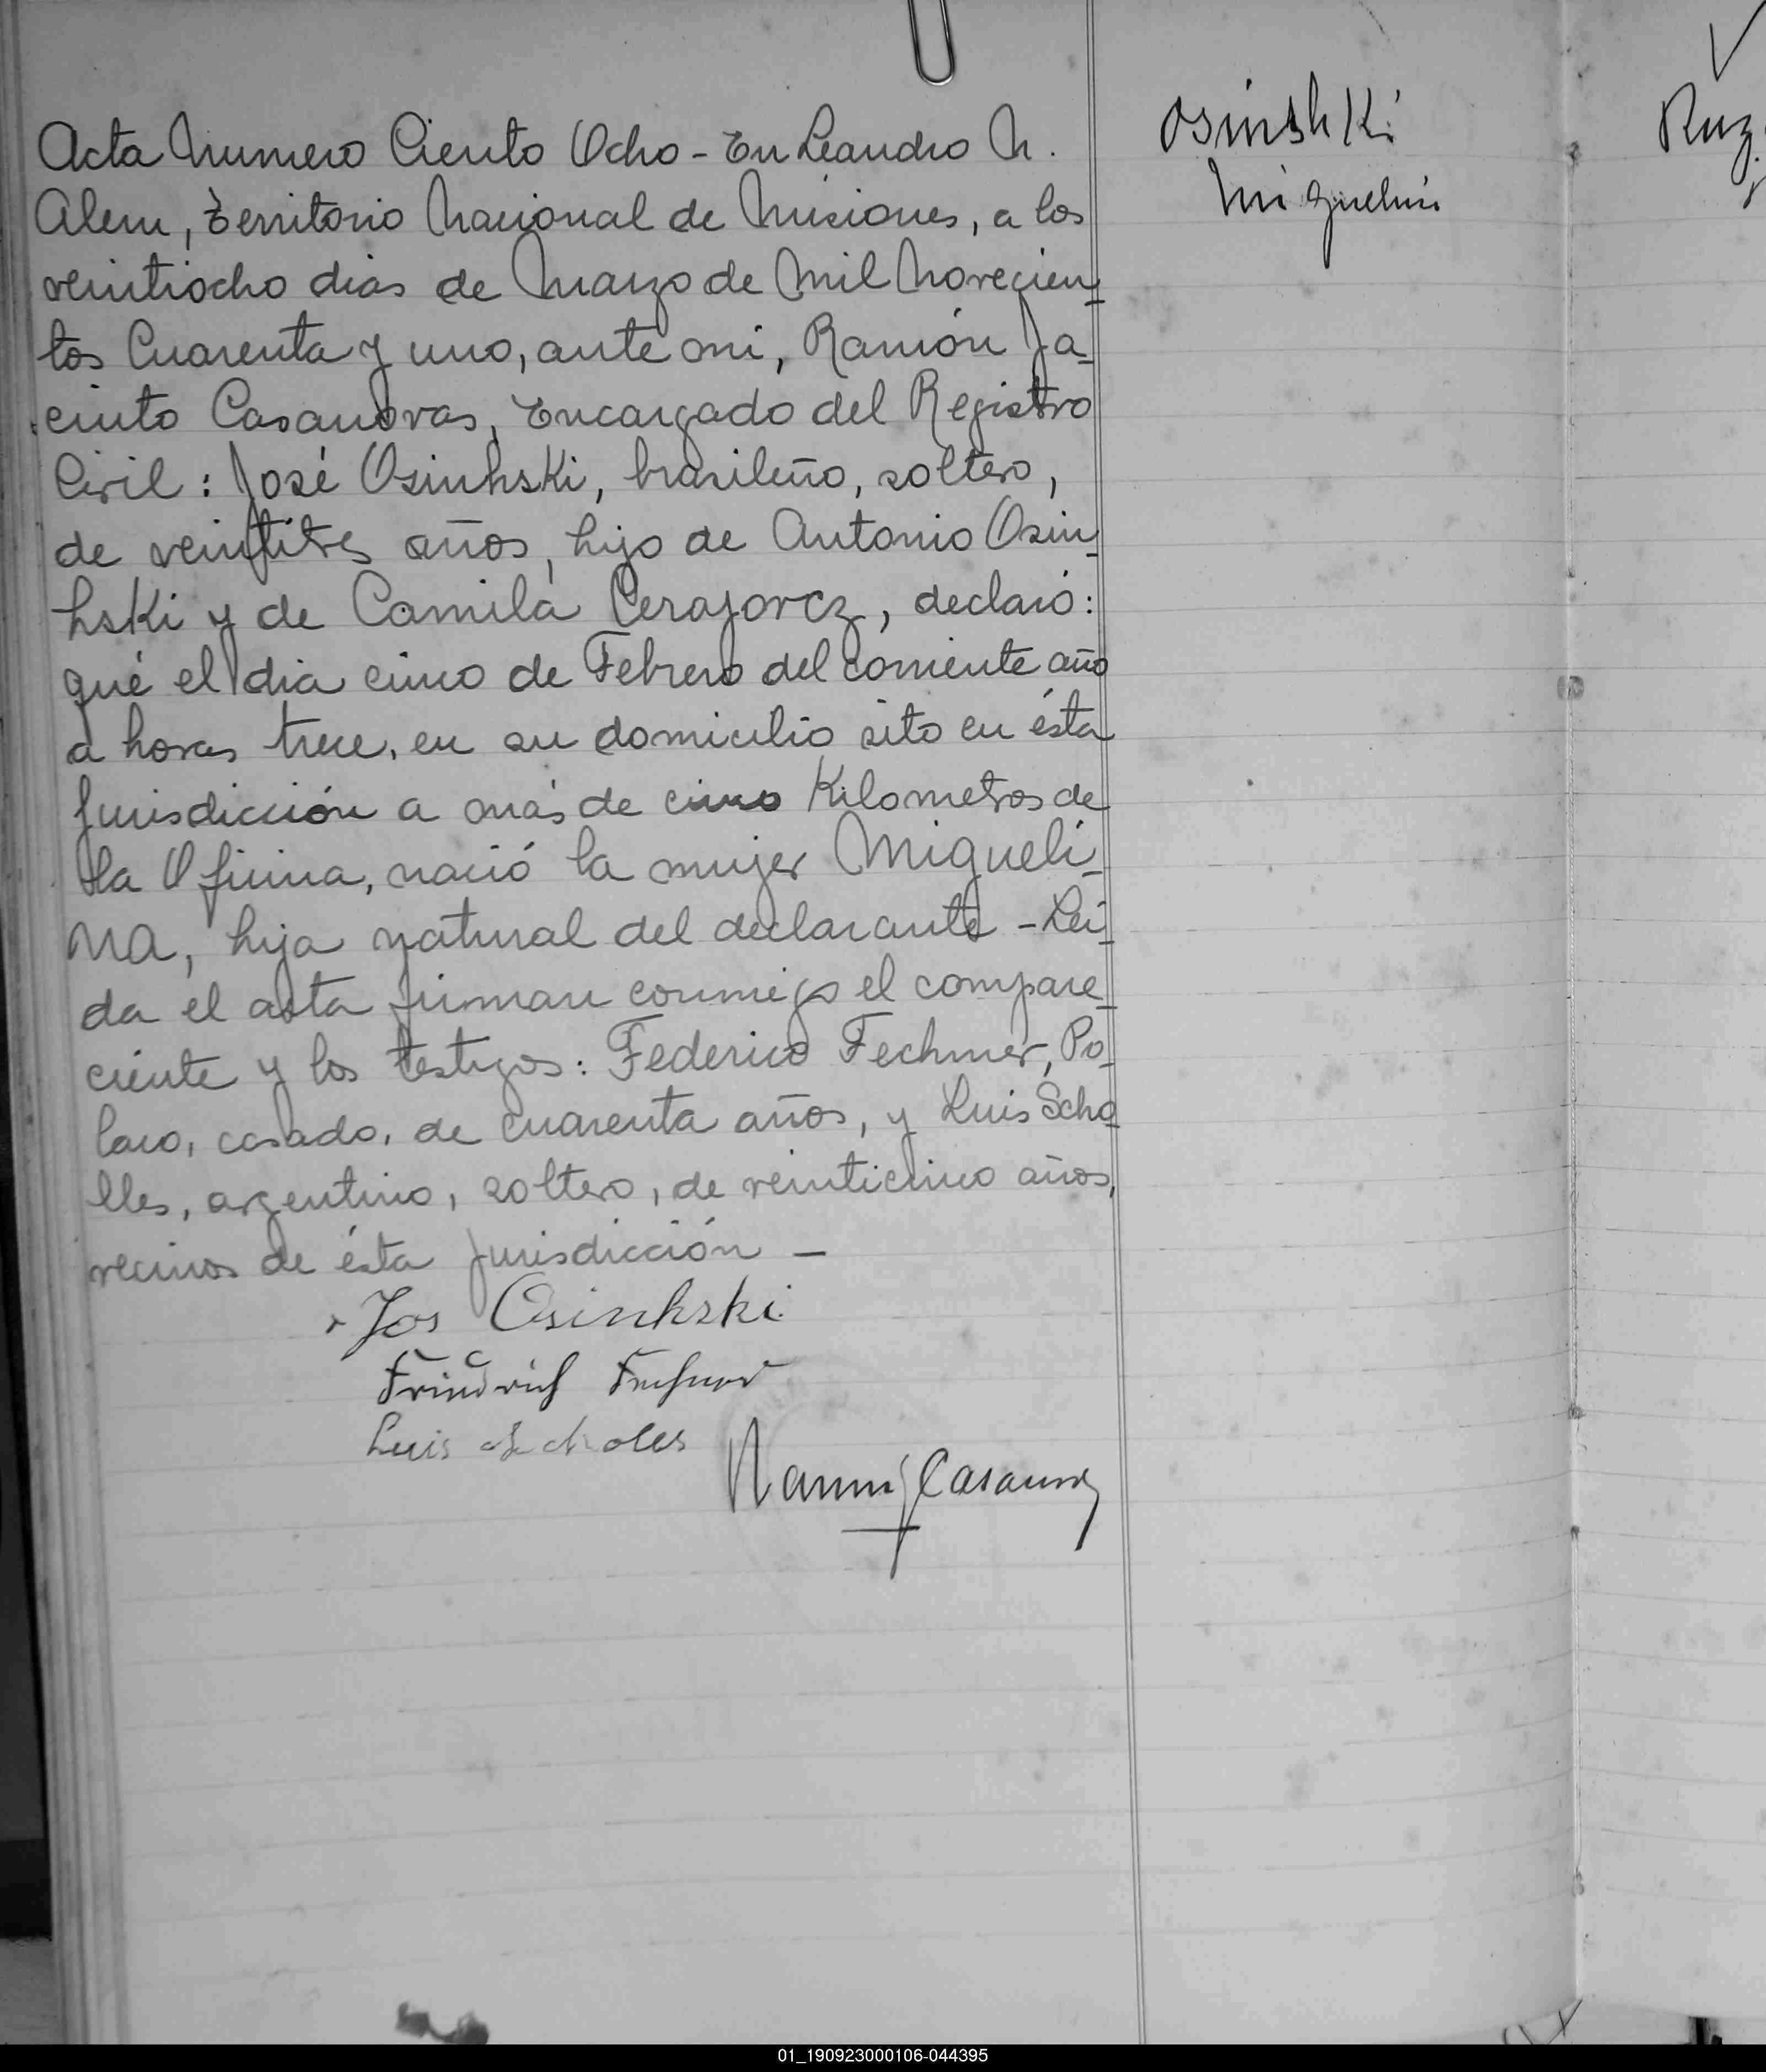 Acta Numero Ciento Ocho - En Leandro N.
Alem, Territorio Nacional de Misiones, a los
veintiocho dias de Marzo de Mil Novecien-
tos Cuarenta y uno, ante mi, Ramón Ja-
cinto Casanovas, Encargado del Registro
Civil: José Osinhski, brasileño, soltero,
de veintitres años, hijo de Antonio Osin-
hski y de Camila Cerajorcz, declaró:
que el dia cinco de Febrero del corriente año
a horas trece, en su domicilio sito en ésta
Jurisdicción a más de cinco Kilometros de
la Oficina, nació la mujer Migueli-
na, hija natural del declarante - Lei-
da el acta firman conmigo el compare-
ciente y los testigos: Federico Fechner, Po-
laco, casado, de cuarenta años, y Luis Scho-
lles, argentino, soltero, de veinticinco años,
vecinos de ésta Jurisdicción -
Jos Osinhski
Friedrich Fechner
Luis Scholes
Ramon J Casanovas
Osinshki
Miguelina
Ruz
01_190923000106-044395